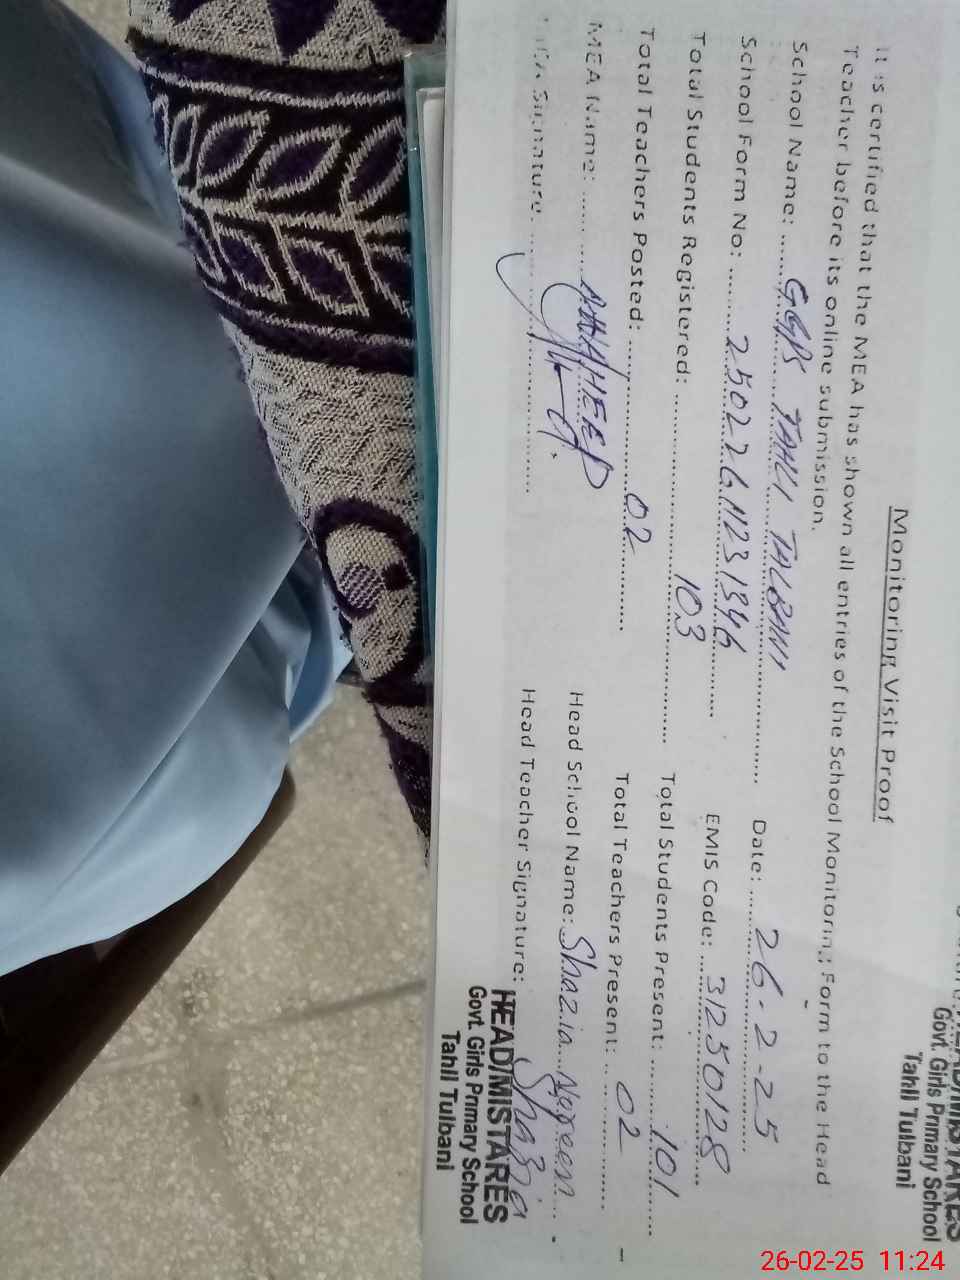 HEAD/MISTARES
Govt. Girls Primary School
Tahli Tulbani
Monitoring Visit Proof
It is certified that the MEA has shown all entries of the School Monitoring Form to the Head
Teacher before its online submission.
School Name: GGPS TAHLI TALBANI Date: 26-2-25
School Form No: EMIS Code: 31250128
Total Students Registered: 103 Total Students Present: 101
Total Teachers Posted: 02 Total Teachers Present: 02
MEA Name: Head School Name: Shazia Noreen
Signature Head Teacher Signature: Shazia
HEAD/MISTARES
Govt. Girls Primary School
Tahli Tulbani
26-02-25 11:24